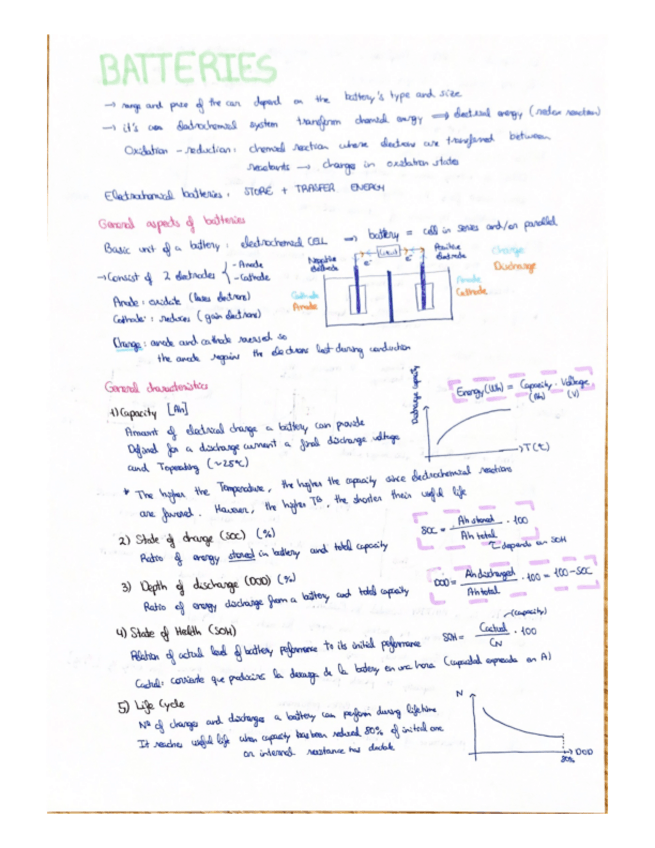 BATTERIES
→ range and price of the car depend on the battery's type and size
→ it's an electrochemical system transform chemical energy ⟹ electrical energy (redox reaction)
Oxidation - reduction: chemical reaction where electrons are transferred between
reactants → changes in oxidation states
Electrochemical batteries: STORE + TRASFER ENERGY
General aspects of batteries
Basic unit of a battery: electrochemical CELL ⟹ battery = cell in series and/or parallel
→ Consist of 2 electrodes { - Anode
- Cathode
Negative electrode
e⁻
e⁻
Positive electrode
Charge
Discharge
Cathode
Anode
Anode
Cathode
Anode: oxidate (loses electrons)
Cathode: reduces (gain electrons)
Charge: anode and cathode reversed so
the anode regains the electrons lost during conduction
General characteristics
Energy (Wh) = Capacity · Voltage
(Ah) (V)
1) Capacity [Ah]
Amount of electrical charge a battery can provide
Defined for a discharge current a final discharge voltage
and Toperating (~25ºC)
Discharge capacity
T (ºC)
* The higher the Temperature, the higher the capacity since electrochemical reactions
are favored. However, the higher Tª, the shorter their useful life
2) State of charge (SOC) (%)
Ratio of energy stored in battery and total capacity
SOC = Ah stored / Ah total · 100
depends on SOH
3) Depth of discharge (DOD) (%)
Ratio of energy discharge from a battery and total capacity
DOD = Ah discharged / Ah total · 100 = 100 - SOC
4) State of Health (SOH)
Relation of actual level of battery peformance to its initial peformance
SOH = Cactual / CN · 100
(capacity)
Cactual: corriente que produciría la descarga de la batery en una hora (capacidad expresada en A)
5) Life Cycle
Nº of charges and discharges a battery can perform during lifetime
It reaches useful life when capacity has been reduced 80% of initial one
or internal resistance has
N
DOD
80%